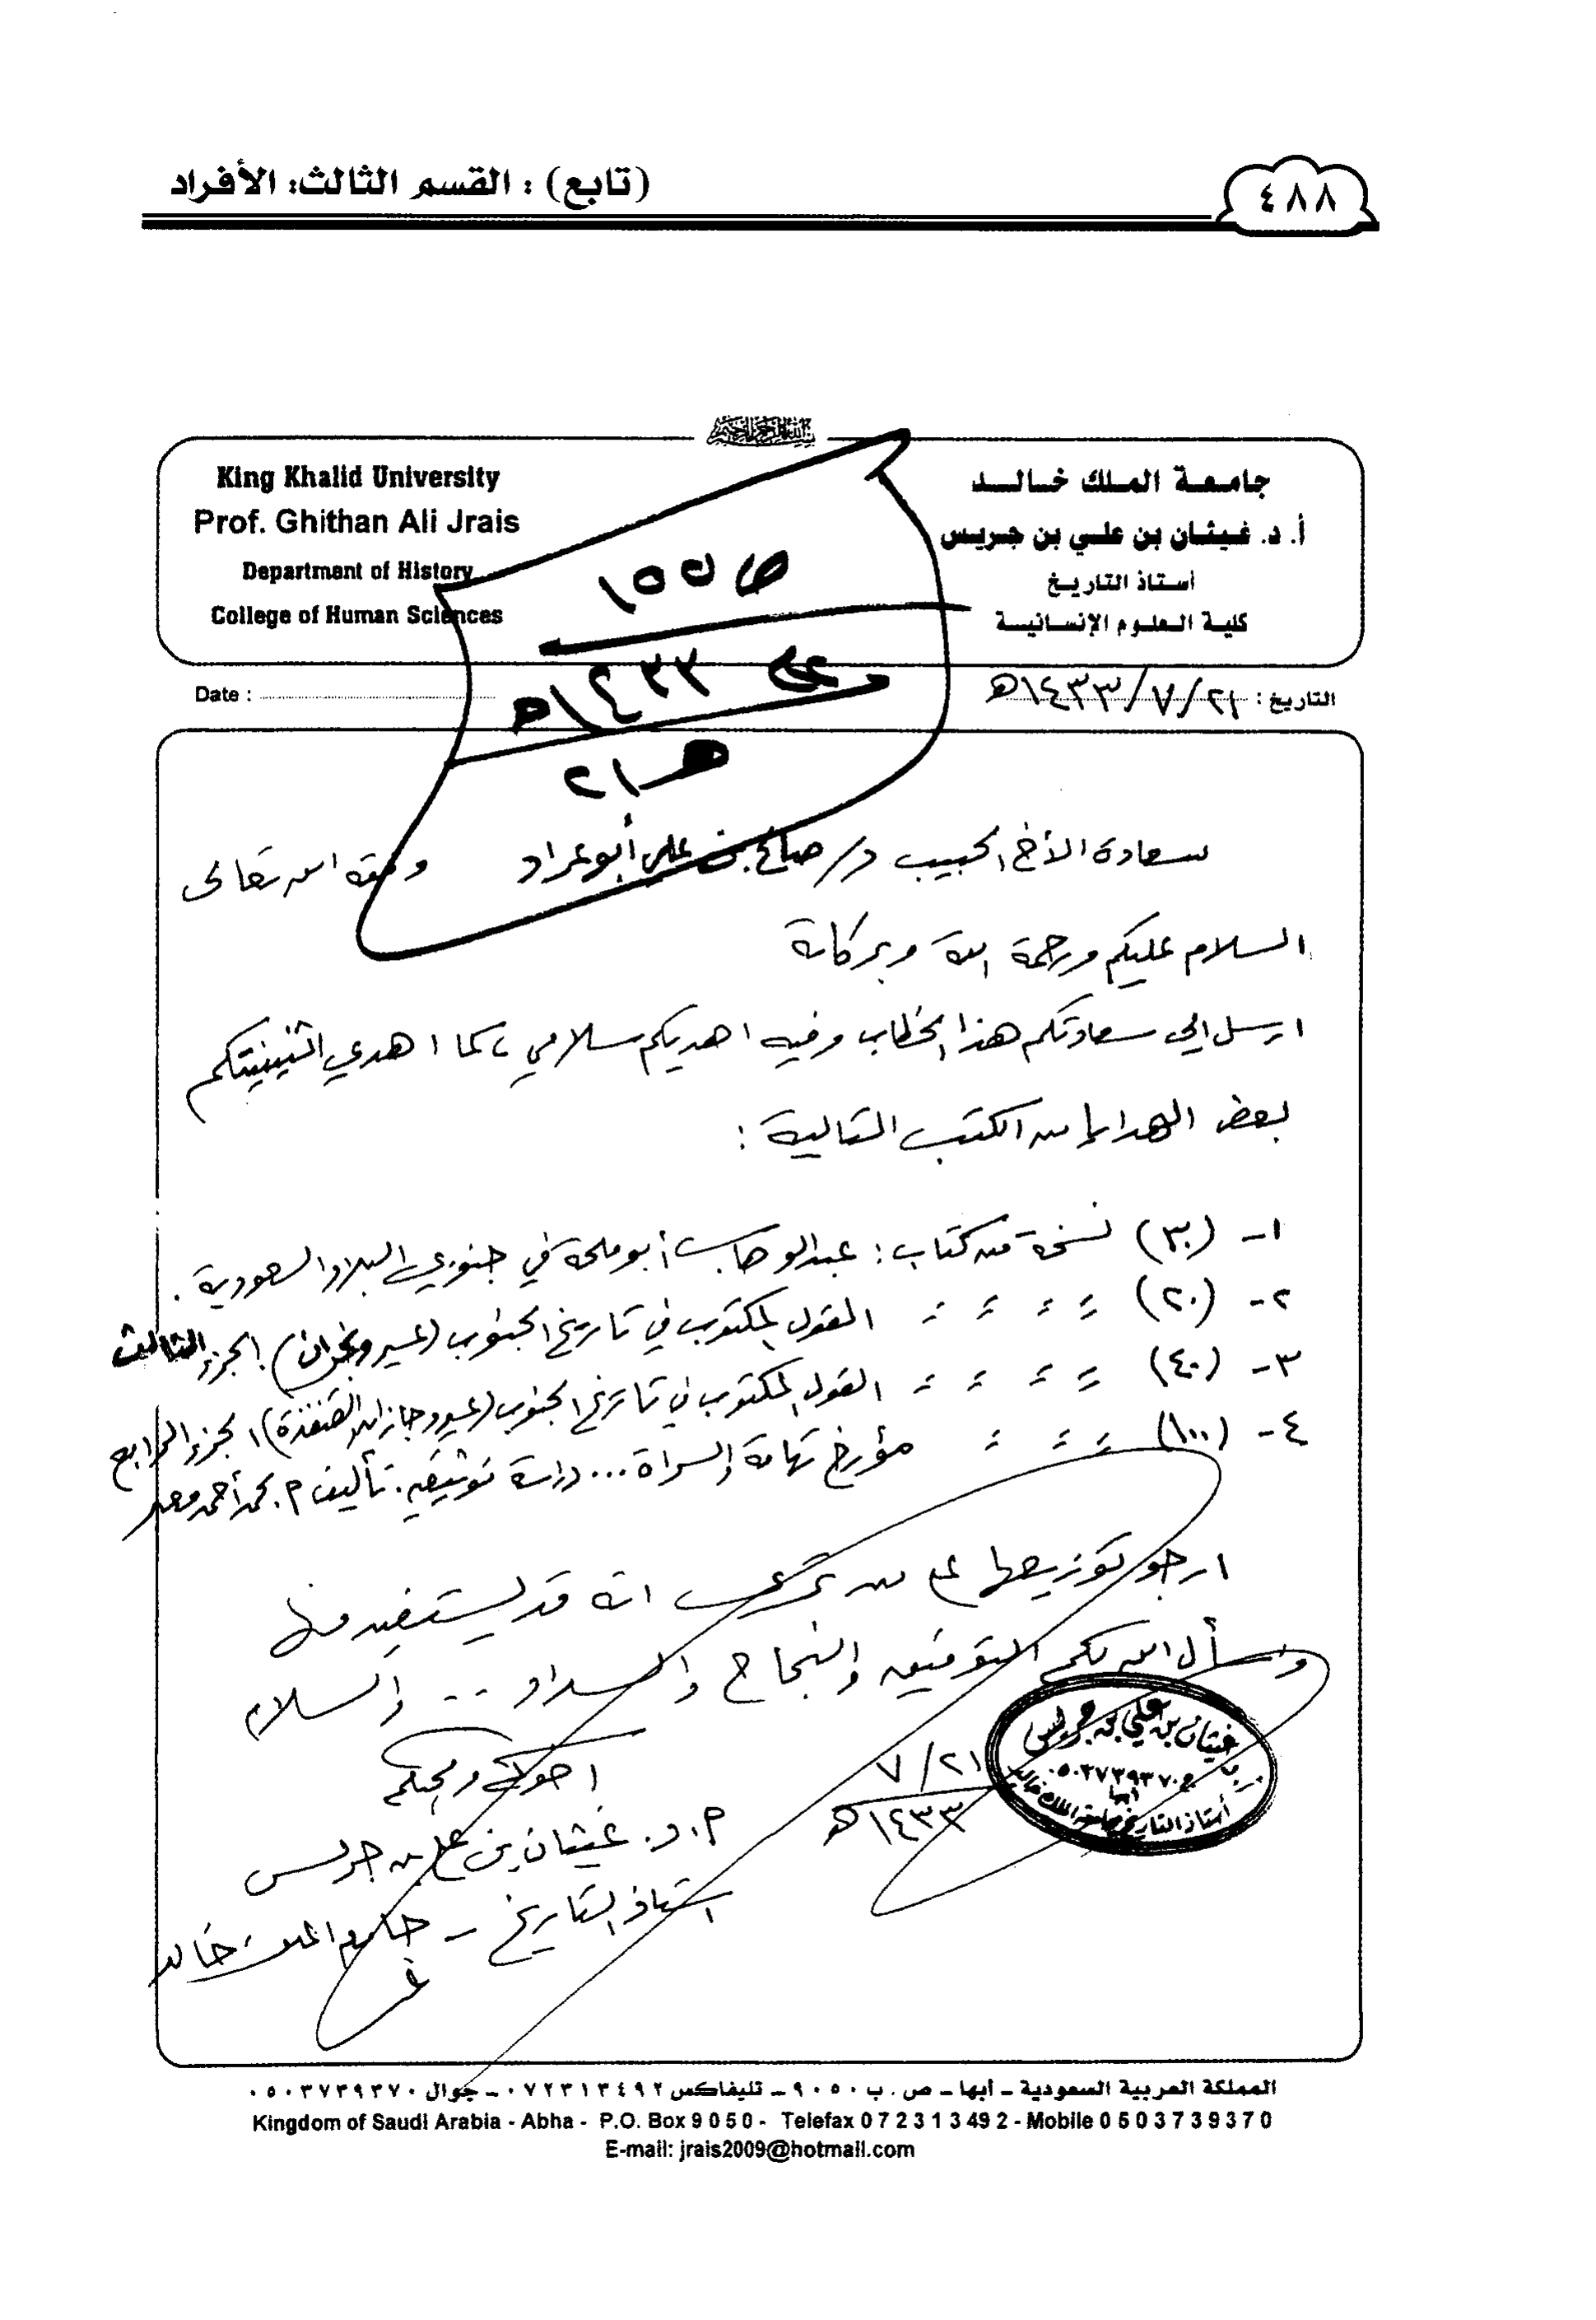 ٤٨٨
(تابع) : القسم الثالث: الأفراد
جامعة الملك خالد
أ. د. غيثان بن علي بن جريس
أستاذ التاريخ
كلية العلوم الإنسانية
King Khalid University
Prof. Ghithan Ali Jrais
Department of History
College of Human Sciences
التاريخ : ٢١/٧/١٤٣٣هـ
Date :
١٤٣٣هـ
سعادة الأخ الحبيب د/ صالح بن علي أبو عراد وفقه الله تعالى
السلام عليكم ورحمة الله وبركاته
ارسل الى سعادتكم هذا الخطاب وفيه اهديكم سلامي ، كما اهدي اثنينيتكم
بعض الهدايا من الكتب التالية :
١- (٣٠) نسخة من كتاب : عبدالوهاب أبو ملحة في جنوبي البلاد السعودية .
٢- (٢٠) = = = = القول المكتوب في تاريخ الجنوب (عسير ونجران) . الجزء الثالث
٣- (٤٠) = = = = القول المكتوب في تاريخ الجنوب (عسير وجازان والقنفذة) ، الجزء الرابع
٤- (١٠٠) = = = مؤرخ تهامة والسراة ... دراسة توثيقية . تأليف م. محمد أحمد معبر
ارجو توزيعها على من ترى انه قد يستفيد منها
وأسأل الله لكم التوفيق والنجاح والسداد .. والسلام
اخوكم ومحبكم
أ. د. غيثان بن علي بن جريس
استاذ التاريخ – جامعة الملك خالد
٢١/٧
١٤٣٣هـ
غيثان بن علي بن جريس
٠٥٠٣٧٣٩٣٧٠
أبها
أستاذ التاريخ بجامعة الملك خالد
المملكة العربية السعودية – أبها – ص . ب ٩٠٥٠ – تليفاكس ٠٧٢٣١٣٤٩٢ – جوال ٠٥٠٣٧٣٩٣٧٠
Kingdom of Saudi Arabia - Abha - P.O. Box 9 0 5 0 - Telefax 0 7 2 3 1 3 49 2 - Mobile 0 5 0 3 7 3 9 3 7 0
E-mail: jrais2009@hotmail.com